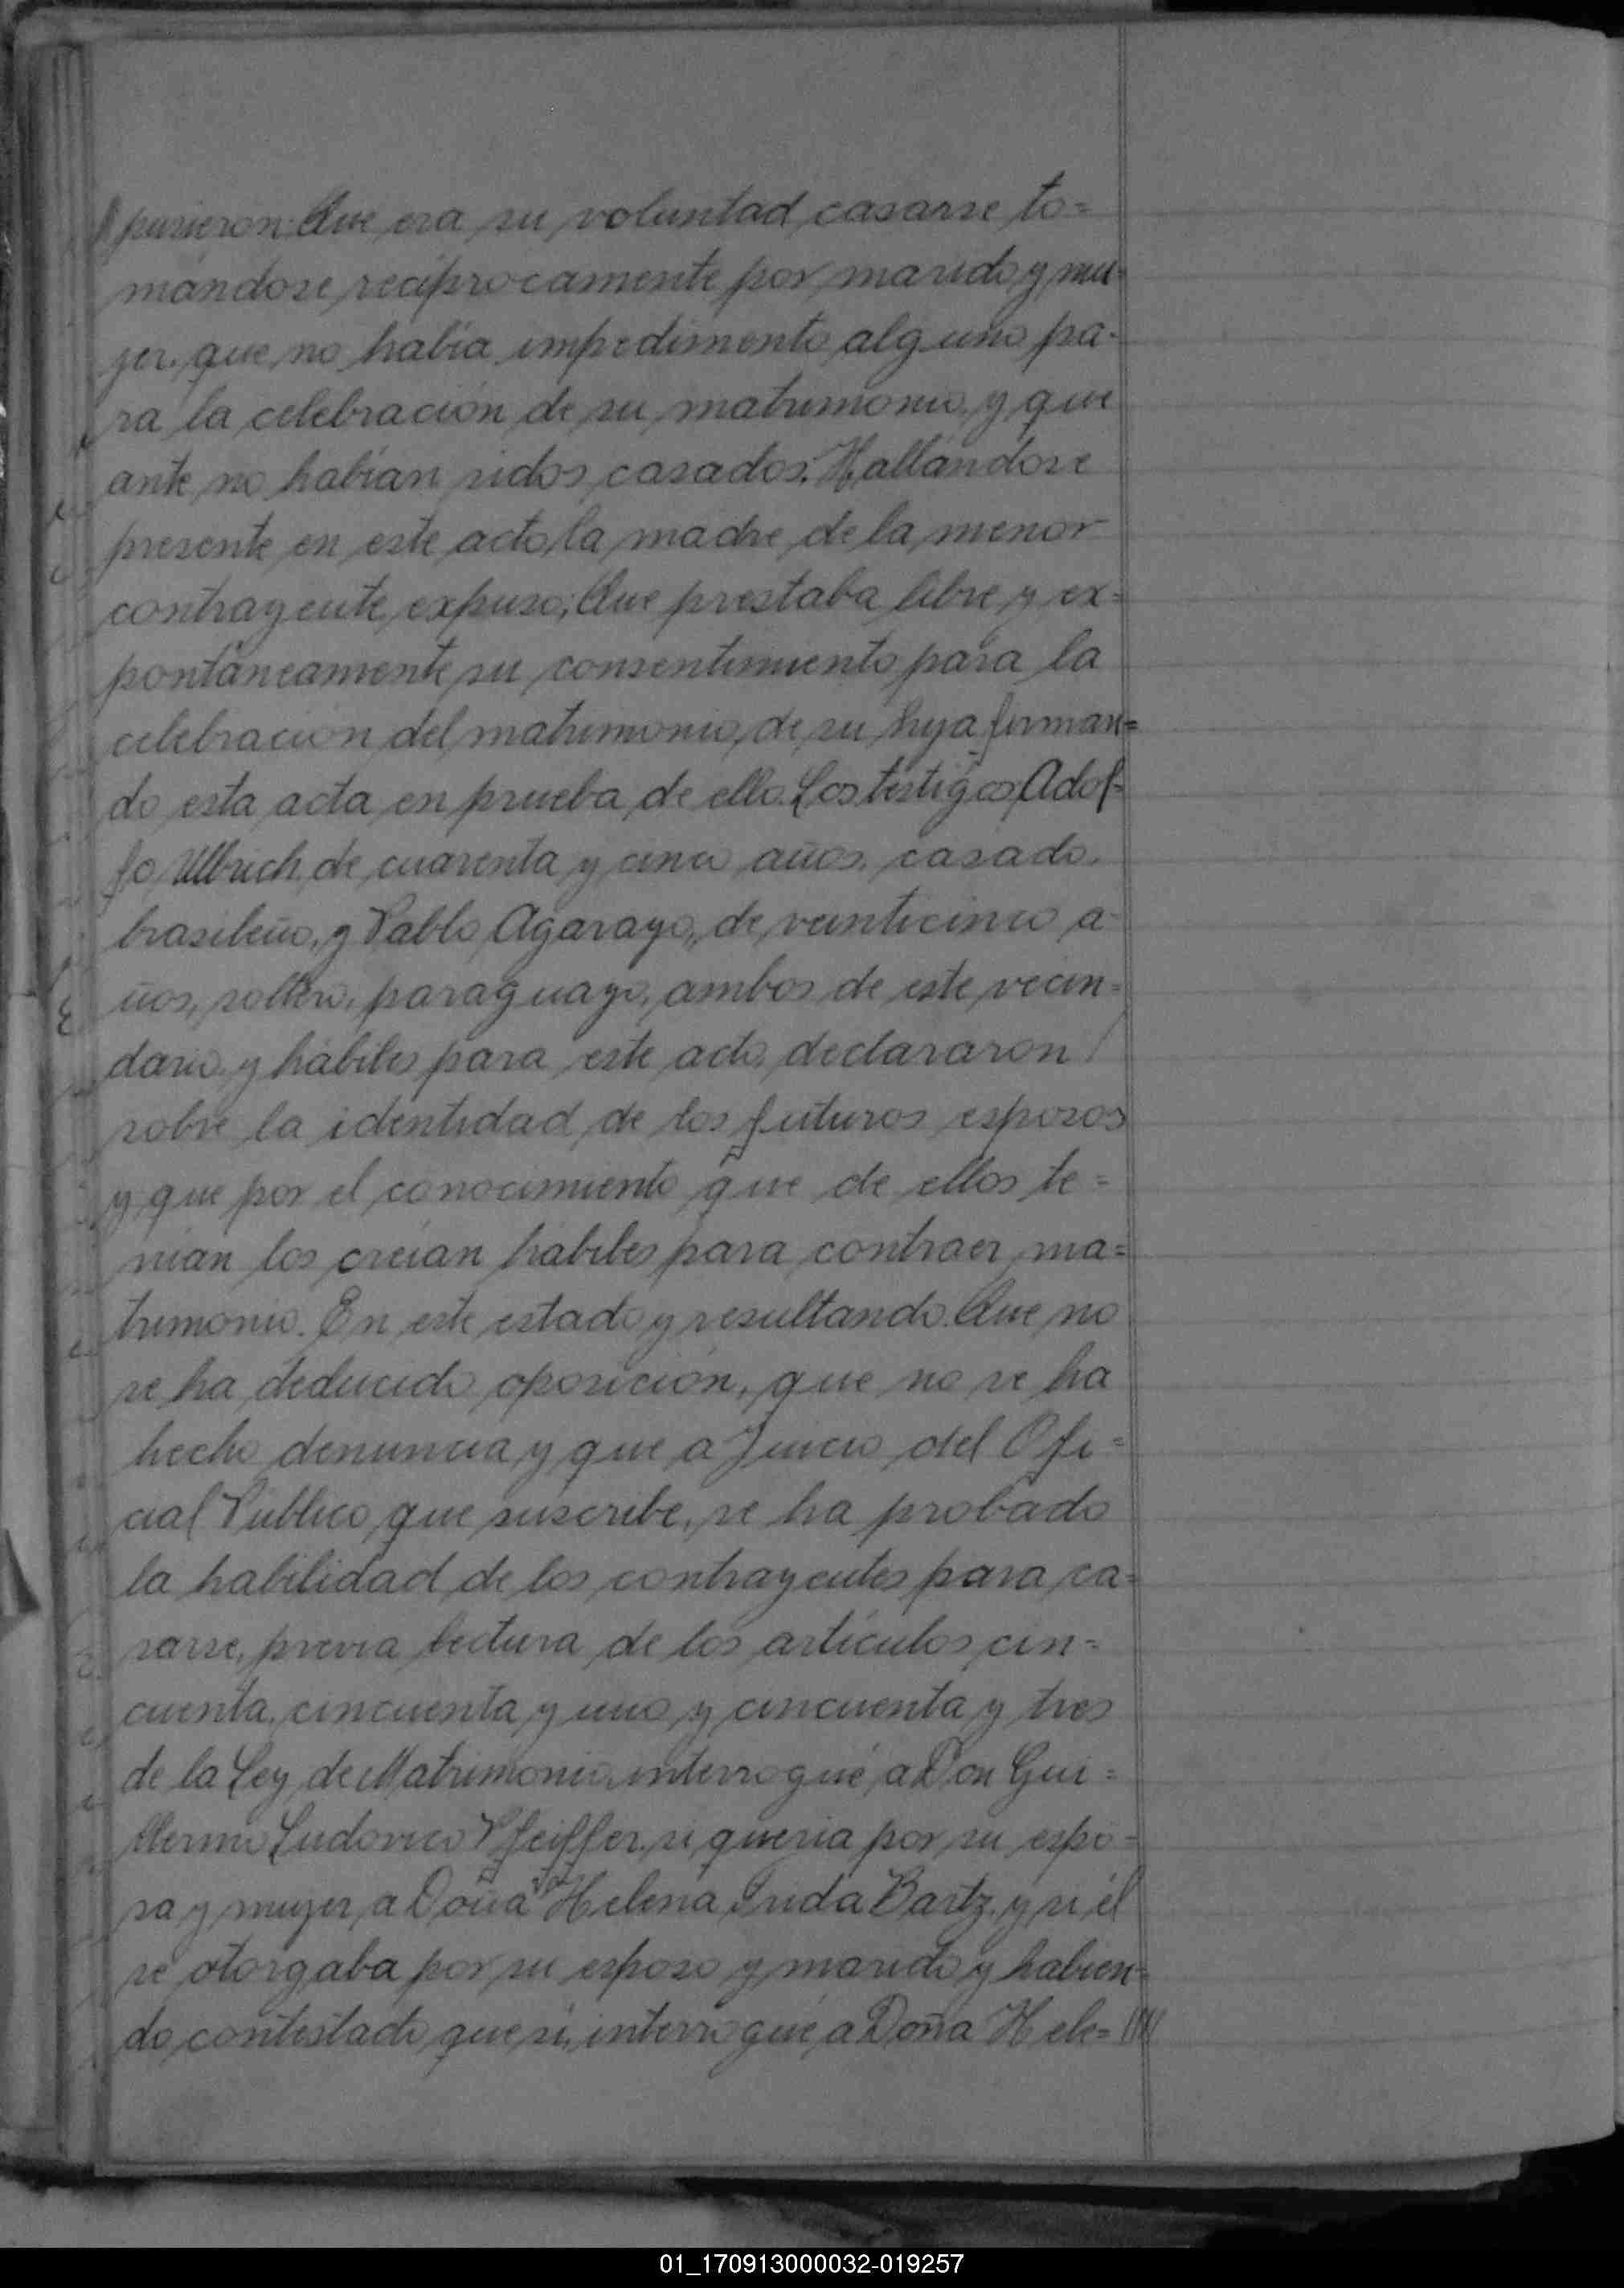 pusieron: Que era su voluntad casarse to=
mándose recíprocamente por marido y mu=
jer, que no había impedimento alguno pa-
ra la celebración de su matrimonio, y que
ante no habían sidos casados. Hallándose
presente en este acto, la madre de la menor
contrayente, expuso; Que prestaba libre y ex=
pontáneamente su consentimiento para la
celebración del matrimonio, de su hija firman=
do esta acta en prueba de ello. Los testigos, Adol=
fo Ullrich, de cuarenta y cinco años, casado,
brasileño, y Pablo Agarayo, de veinticinco a-
ños, soltero, paraguayo, ambos de este vecin=
dario, y hábiles para este acto, declararon
sobre la identidad de los futuros esposos
y que por el conocimiento que de ellos te=
nían los creían hábiles para contraer ma=
trimonio. En este estado y resultando. Que no
se ha deducido oposición, que no se ha
hecho denuncia y que a Juicio del Ofi=
cial Público que suscribe, se ha probado
la habilidad de los contrayentes para ca=
sarse, previa lectura de los artículos cin=
cuenta, cincuenta y uno y cincuenta y tres
de la Ley de Matrimonio, interrogué a Don Gui=
llermo Ludovico Pfeiffer, si quería por su espo=
sa y mujer, a Doña Helena Frida Bartz, y si él
se otorgaba por su esposo y marido y habien=
do contestado que sí, interrogué a Doña Hele= ////
01_170913000032-019257